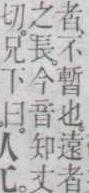 者、不暫也。遠者
之長。今音知丈
切。兄下曰。人